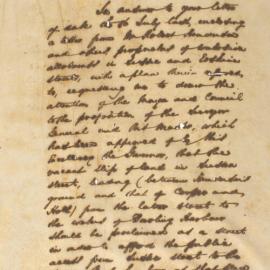 In answer to your letter
of date 20th July last, enclosing
a letter from Mr Robert
and others proprietors of
allotments in Sussex and
Streets, with a plan therein referred,
to, requesting me to draw the
attention of the Mayor and Council
to the proposition of the Surveyor
General and that which
has been approved of by His
Excellency the Governor, that the
vacant slip of land in Sussex
street, leading (between
ground and that of Cooper and
Holt) from the latter street to
the waters of Darling Harbour
should be proclaimed as a street
in order to afford the public
access from Sussex street to the